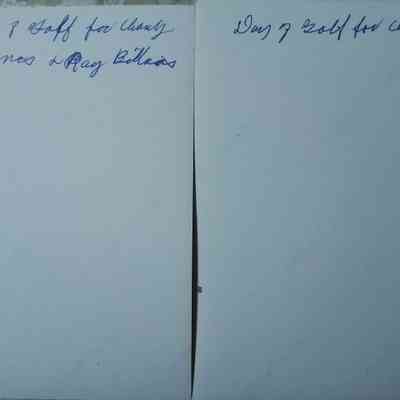 ? Golf for Charity
nces & Ray Billows
Day of Golf for C